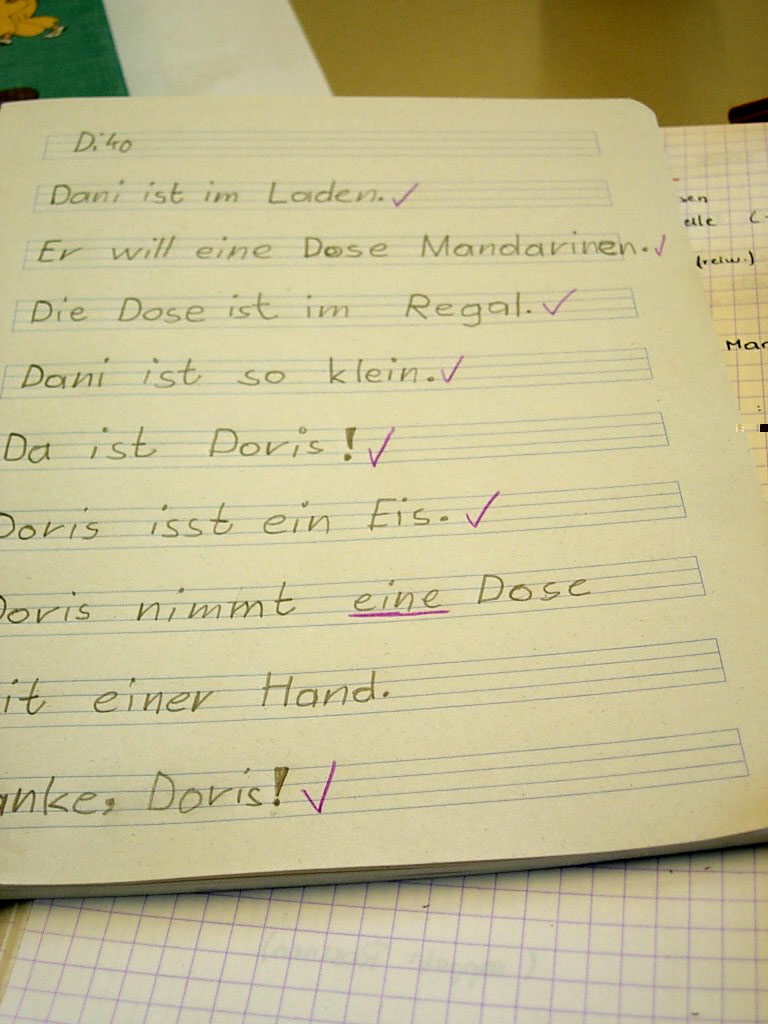 Di40
Dani ist im Laden.
Er will eine Dose Mandarinen.
Die Dose ist im Regal.
Dani ist so klein.
Da ist Doris!
Doris isst ein Eis.
Doris nimmt eine Dose
it einer Hand.
anke, Doris!
elle
(reiw.)
Mar